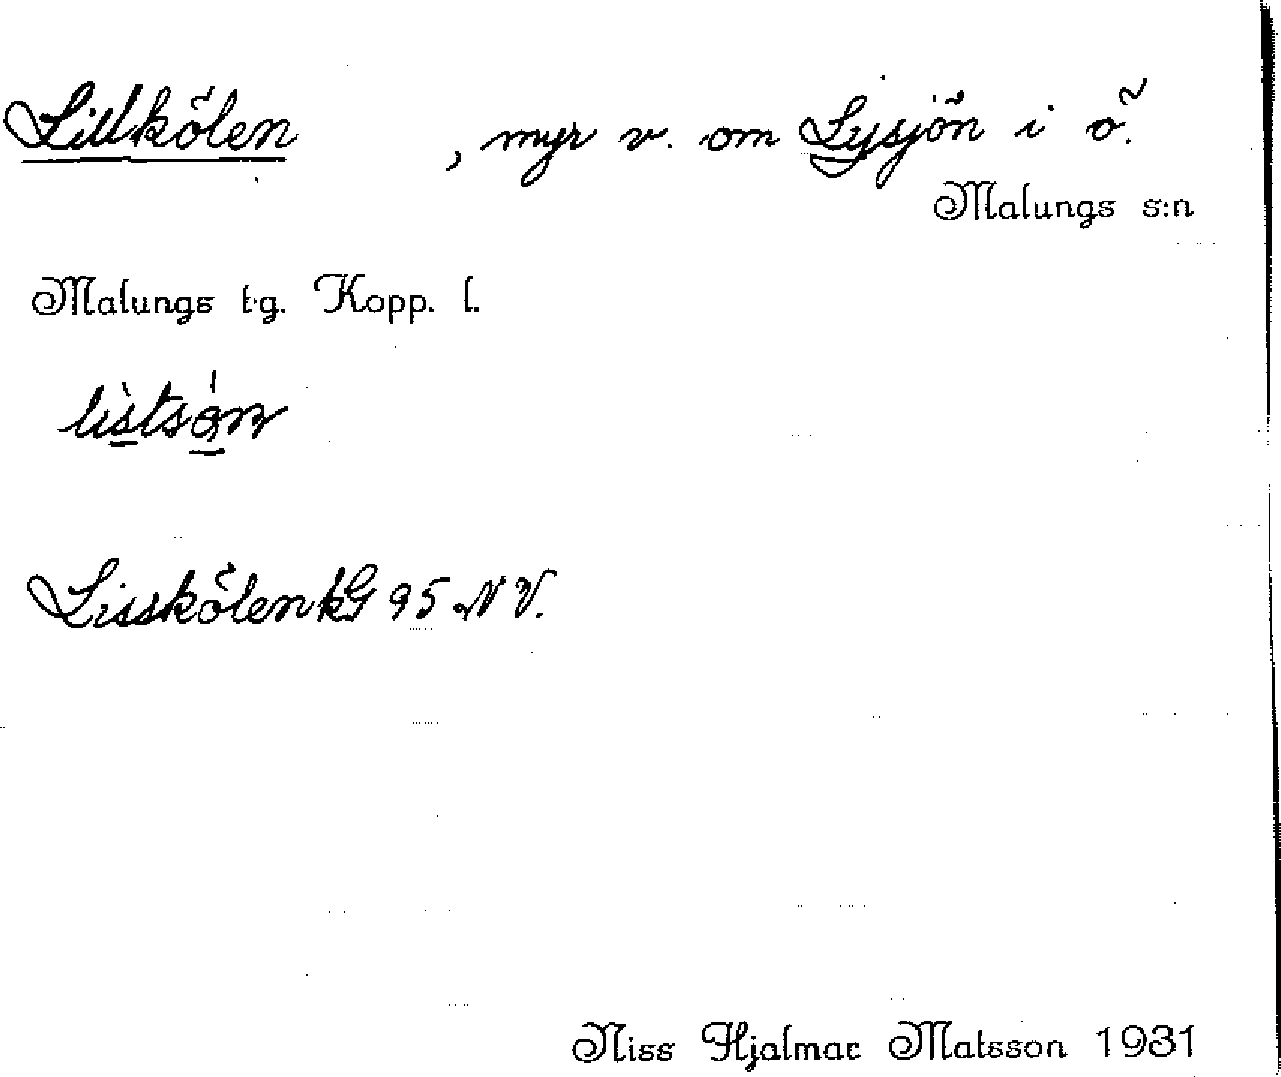 Lillkölen , myr v. om Lysjön i ö.
Malungs s:n
Malungs t.g. Kopp. l.
Lisskölen kG 95 NV.
Niss Hjalmar Matsson 1931